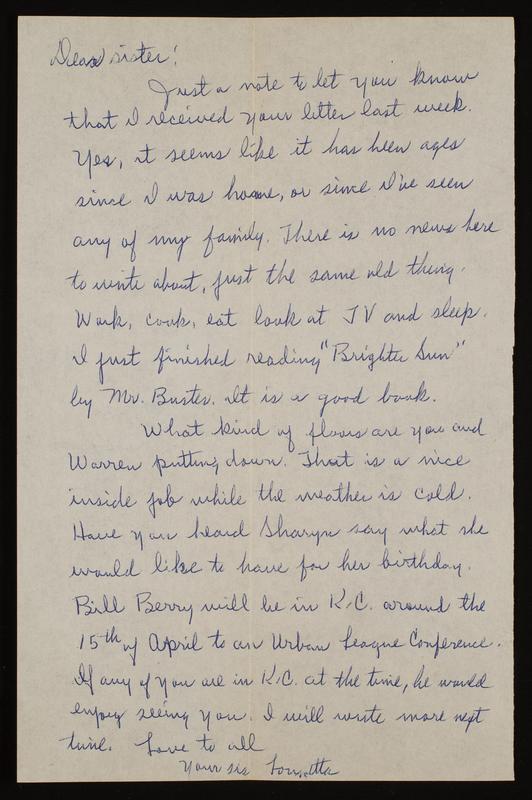 Dear sister!
Just a note to let you know
that I received your letter last week.
Yes, it seems like it has been ages
since I was home, or since I've seen
any of my family. There is no news here
to write about, just the same old thing.
Work, cook, eat look at TV and sleep.
I just finished reading "Brighter Sun"
by Mr. Buster. It is a good book.
What kind of floors are you and
Warren putting down. That is a nice
inside job while the weather is cold.
Have you heard Sharyn say what she
would like to have for her birthday.
Bill Berry will be in K.C. around the
15th of April to an Urban League Conference.
If any of you are in K.C. at the time, he would
enjoy seeing you. I will write more next
time. Love to all
Your sis Lou,etta